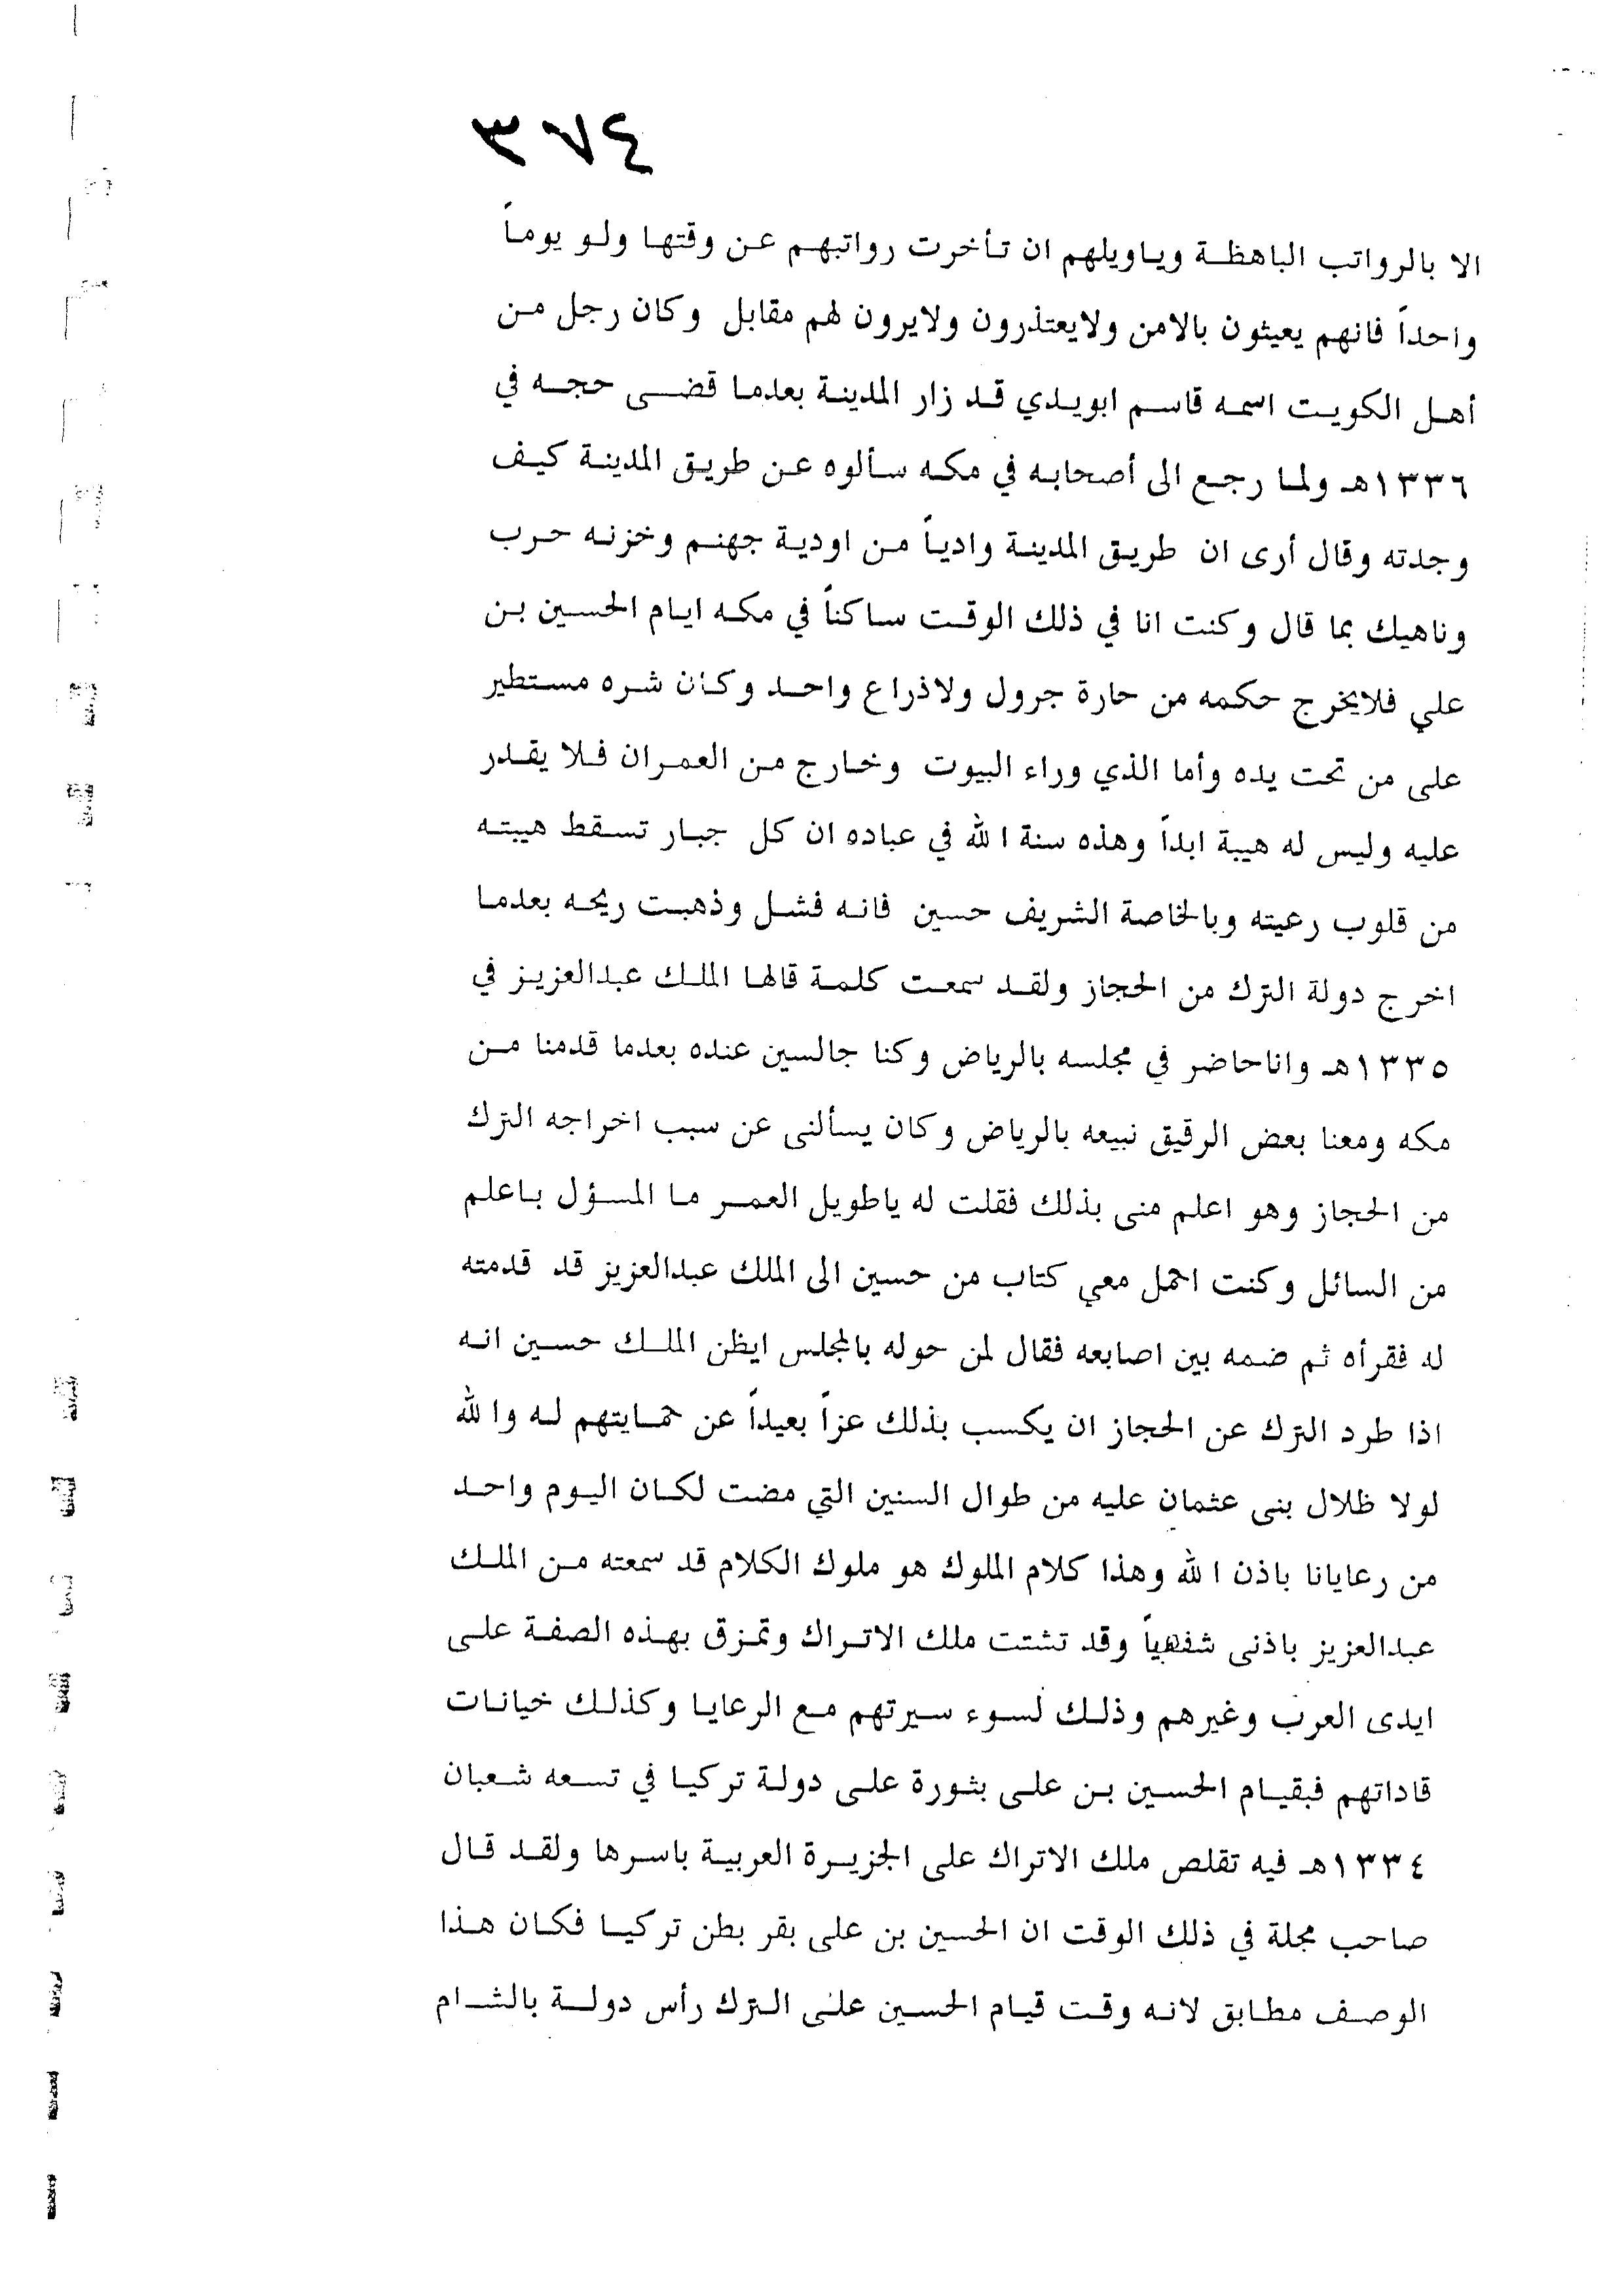 ٣٧٤
الا بالرواتب الباهظة وياويلهم ان تأخرت رواتبهم عن وقتها ولو يوماً
واحداً فانهم يعيثون بالامن ولايعتذرون ولايرون لهم مقابل وكان رجل من
أهل الكويت اسمه قاسم ابويدي قد زار المدينة بعدما قضى حجه في
١٣٣٦هـ ولما رجع الى أصحابه في مكه سألوه عن طريق المدينة كيف
وجدته وقال أرى ان طريق المدينة وادياً من اودية جهنم وخزنه حرب
وناهيك بما قال وكنت انا في ذلك الوقت ساكناً في مكه ايام الحسين بن
علي فلايخرج حكمه من حارة جرول ولاذراع واحد وكان شره مستطير
على من تحت يده وأما الذي وراء البيوت وخارج من العمران فلا يقدر
عليه وليس له هيبة ابداً وهذه سنة الله في عباده ان كل جبار تسقط هيبته
من قلوب رعيته وبالخاصة الشريف حسين فانه فشل وذهبت ريحه بعدما
اخرج دولة الترك من الحجاز ولقد سمعت كلمة قالها الملك عبدالعزيز في
١٣٣٥هـ واناحاضر في مجلسه بالرياض وكنا جالسين عنده بعدما قدمنا من
مكه ومعنا بعض الرقيق نبيعه بالرياض وكان يسألنى عن سبب اخراجه الترك
من الحجاز وهو اعلم منى بذلك فقلت له ياطويل العمر ما المسؤل باعلم
من السائل وكنت احمل معي كتاب من حسين الى الملك عبدالعزيز قد قدمته
له فقرأه ثم ضمه بين اصابعه فقال لمن حوله بالمجلس ايظن الملك حسين انه
اذا طرد الترك عن الحجاز ان يكسب بذلك عزاً بعيداً عن حمايتهم له والله
لولا ظلال بنى عثمان عليه من طوال السنين التي مضت لكان اليوم واحد
من رعايانا باذن الله وهذا كلام الملوك هو ملوك الكلام قد سمعته من الملك
عبدالعزيز باذنى شفهياً وقد تشتت ملك الاتراك وتمزق بهذه الصفة على
ايدى العرب وغيرهم وذلك لسوء سيرتهم مع الرعايا وكذلك خيانات
قاداتهم فبقيام الحسين بن على بثورة على دولة تركيا في تسعه شعبان
١٣٣٤هـ فيه تقلص ملك الاتراك على الجزيرة العربية باسرها ولقد قال
صاحب مجلة في ذلك الوقت ان الحسين بن على بقر بطن تركيا فكان هذا
الوصف مطابق لانه وقت قيام الحسين على الترك رأس دولة بالشام